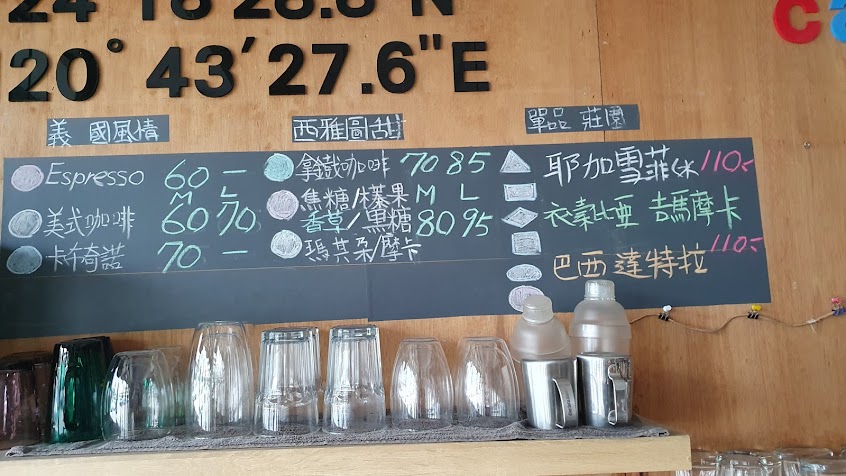 24°18'28.8"N
20°43'27.6"E
ca
義國風情
Espresso 60 –
M L
美式咖啡 60 70
卡布奇諾 70 –
西雅圖甜
拿鐵咖啡 70 85
焦糖/榛果 M L
香草/黑糖 80 95
瑪其朵/摩卡
單品 莊園
耶加雪菲 110.-
衣索比亞 吉瑪摩卡
110.-
巴西達特拉